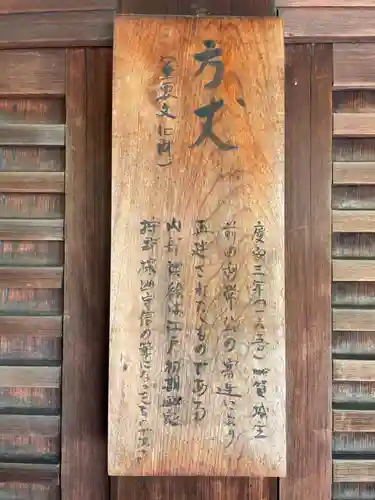 方丈
（重要文化財）
慶安三年（一六五〇）加賀城主
前田利常公の寄進により
再建されたものである
内部襖絵は江戸初期画家
狩野探幽守信の筆になるものである